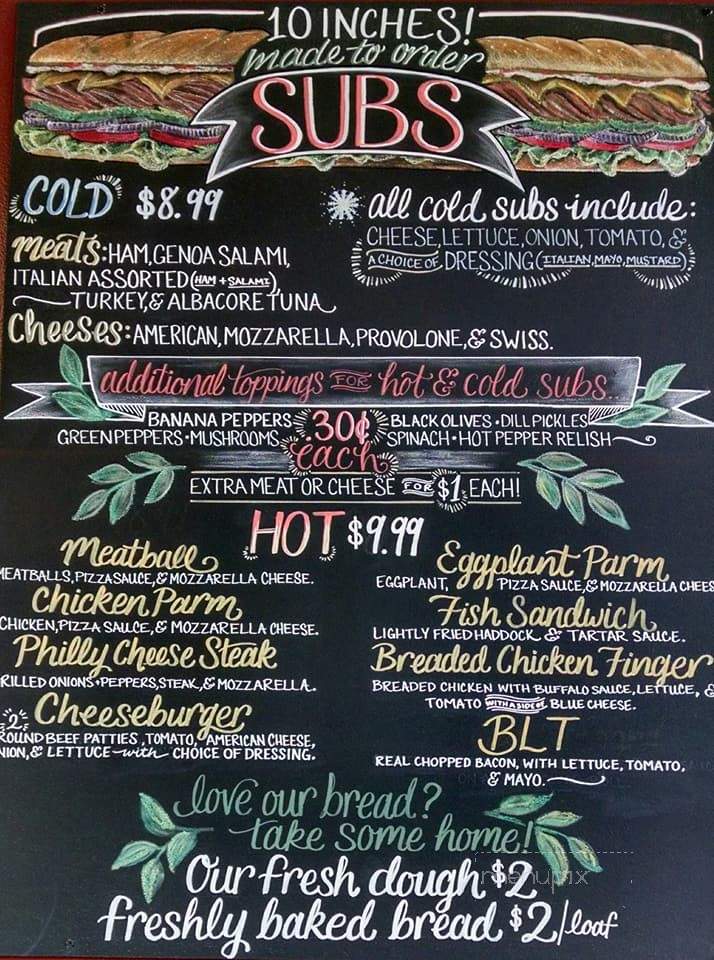 10 INCHES!
made to order
SUBS
COLD $8.99
meats: HAM, GENOA SALAMI,
ITALIAN ASSORTED (HAM + SALAMI),
TURKEY, & ALBACORE TUNA
Cheeses: AMERICAN, MOZZARELLA, PROVOLONE, & SWISS.
all cold subs include:
CHEESE, LETTUCE, ONION, TOMATO, &
A CHOICE OF DRESSING (ITALIAN, MAYO, MUSTARD)
additional toppings FOR hot & cold subs..
BANANA PEPPERS
GREEN PEPPERS • MUSHROOMS
.30¢
each
BLACK OLIVES • DILL PICKLES
SPINACH • HOT PEPPER RELISH
EXTRA MEAT OR CHEESE FOR $1 EACH!
HOT $9.99
Meatball
MEATBALLS, PIZZA SAUCE, & MOZZARELLA CHEESE.
Chicken Parm
CHICKEN, PIZZA SAUCE, & MOZZARELLA CHEESE.
Philly Cheese Steak
RILLED ONIONS • PEPPERS, STEAK, & MOZZARELLA.
Cheeseburger
2
ROUND BEEF PATTIES, TOMATO, AMERICAN CHEESE,
NION, & LETTUCE with CHOICE OF DRESSING.
Eggplant Parm
EGGPLANT, PIZZA SAUCE, & MOZZARELLA CHEES
Fish Sandwich
LIGHTLY FRIED HADDOCK & TARTAR SAUCE.
Breaded Chicken Finger
BREADED CHICKEN WITH BUFFALO SAUCE, LETTUCE, &
TOMATO WITH A SIDE OF BLUE CHEESE.
BLT
REAL CHOPPED BACON, WITH LETTUCE, TOMATO,
& MAYO.
love our bread?
take some home!
Our fresh dough $2
freshly baked bread $2/loaf
menupix